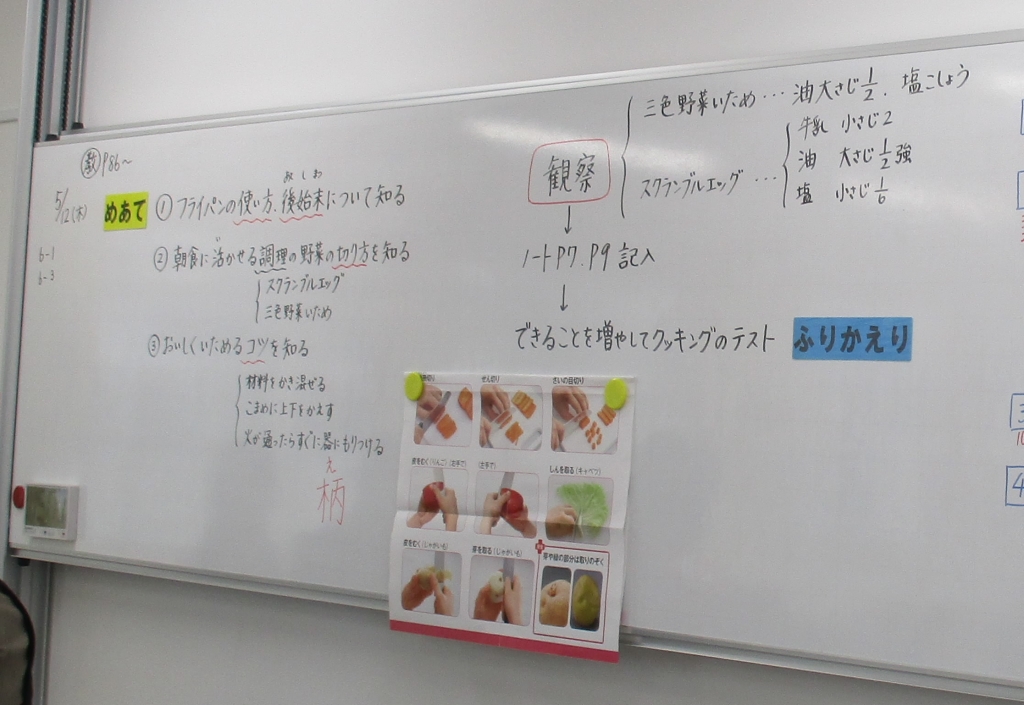 教 P86～
5/12(木)
めあて
①フライパンの使い方、後始末について知る
6-1
6-3
②朝食に活かせる調理の野菜の切り方を知る
スクランブルエッグ
三色野菜いため
③おいしくいためるコツを知る
材料をかき混ぜる
こまめに上下をかえす
火が通ったらすぐに器にもりつける
え
柄
三色野菜いため…油大さじ1/2、塩こしょう
観察
スクランブルエッグ…
牛乳 小さじ2
油 大さじ1/2強
塩 小さじ1/6
↓
ノートP7、P9 記入
↓
できることを増やしてクッキングのテスト
ふりかえり
せん切り
さいの目切り
皮をむく(りんご)(右手で)
(左手で)
しんを取る(キャベツ)
皮をむく(じゃがいも)
芽を取る(じゃがいも)
芽や緑の部分は取りのぞく